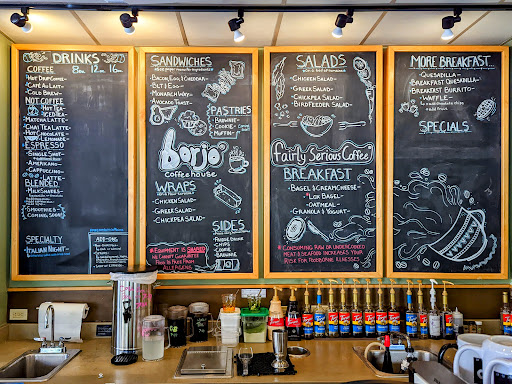 DRINKS
COFFEE 8oz 12oz 16oz
-Hot Drip Coffee-
-Café Au Lait-
-Cold Brew-
NOT COFFEE
-Hot Tea-
-Iced Tea-
-Matcha Latte-
-Chai Tea Latte-
-Hot Chocolate-
-Lemonade-
ESPRESSO
-Single Shot-
-Americano-
-Cappuccino-
-Latte-
BLENDED
-Milkshakes-
-Smoothies-
Coming Soon!
SPECIALTY
-Italian Night-
-ADD-ONS-
SANDWICHES
-Bacon, Egg & Cheddar-
-BLT & Egg-
-Monarch Way-
-Avocado Toast-
PASTRIES
-Brownie-
-Cookie-
-Muffin-
borjo
coffeehouse
WRAPS
-Chicken Salad-
-Greek Salad-
-Chickpea Salad-
SIDES
-Chips-
-Cookie-
-Brownie-
*Equipment is Shared
We Cannot
Guarantee
Food is Free From
Allergens*
SALADS
-Chicken Salad-
-Greek Salad-
-Chickpea Salad-
-Bird Feeder Salad-
fairly Serious Coffee
BREAKFAST
-Bagel & Cream Cheese-
*Lox Bagel
-Oatmeal-
-Granola & Yogurt-
*Consuming Raw or Undercooked
Meat & Seafood Increases Your
Risk for Foodborne Illnesses
MORE BREAKFAST...
-Quesadilla-
-Breakfast Quesadilla-
-Breakfast Burrito-
-Waffle-
SPECIALS